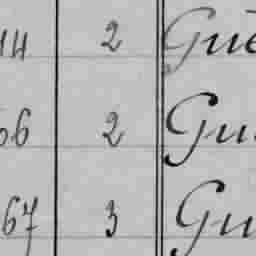 14 2 Guè
56 2 Gu
67 3 Gu